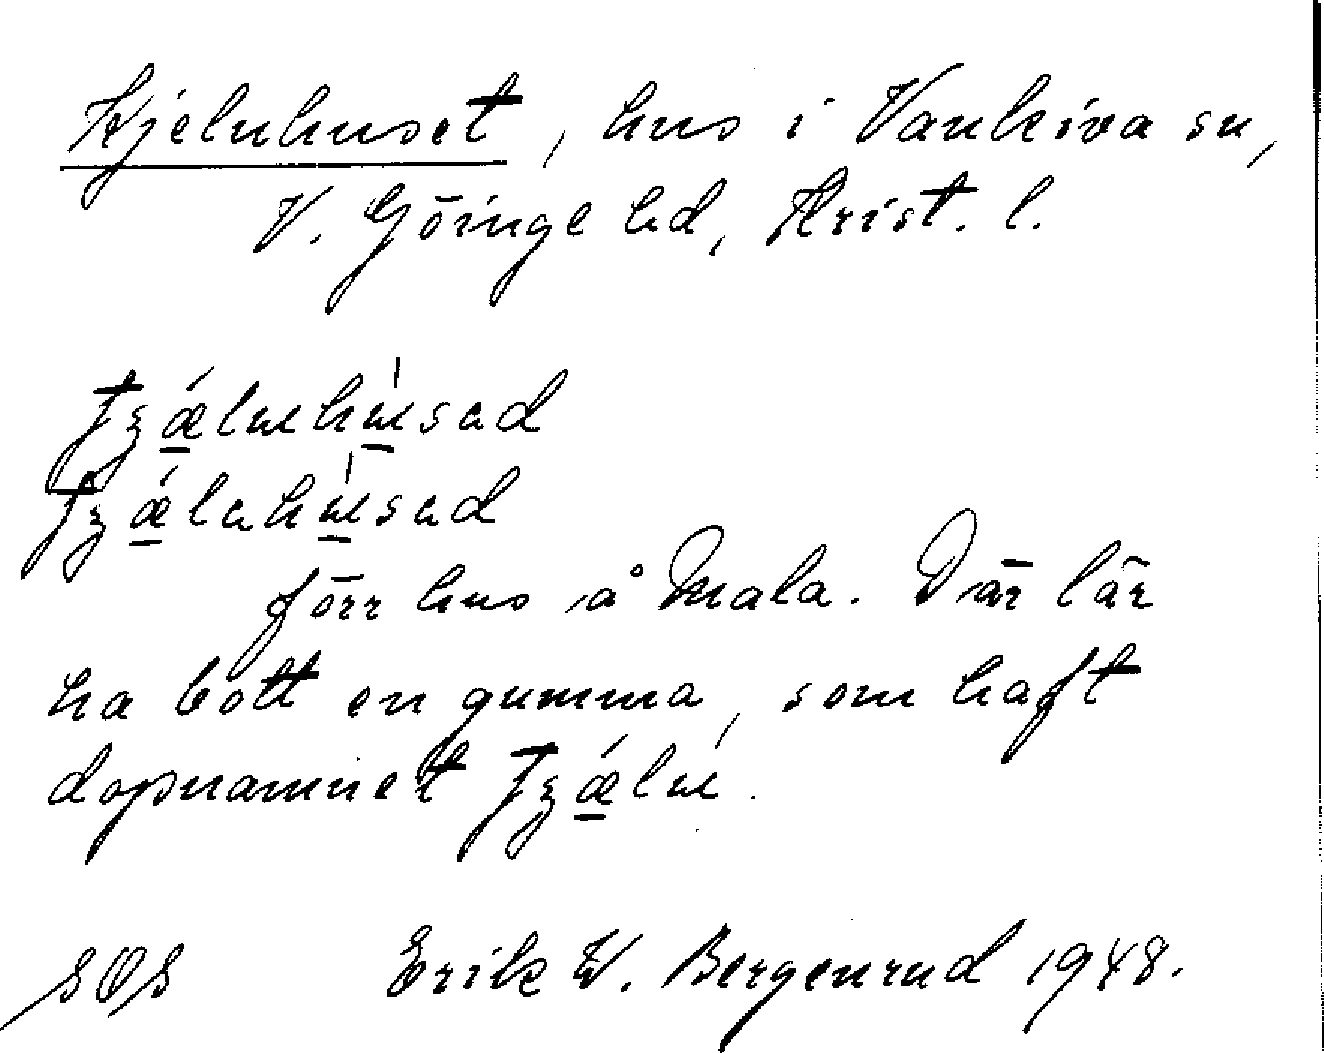 Kjeluhuset, hus i Vankiva sn,
V. Göinge hd, Krist. l.
förr hus å Mala. Där lär
ha bott en gumma, som haft
dopnamnet
SOS Erik W. Bergenrud 1948.